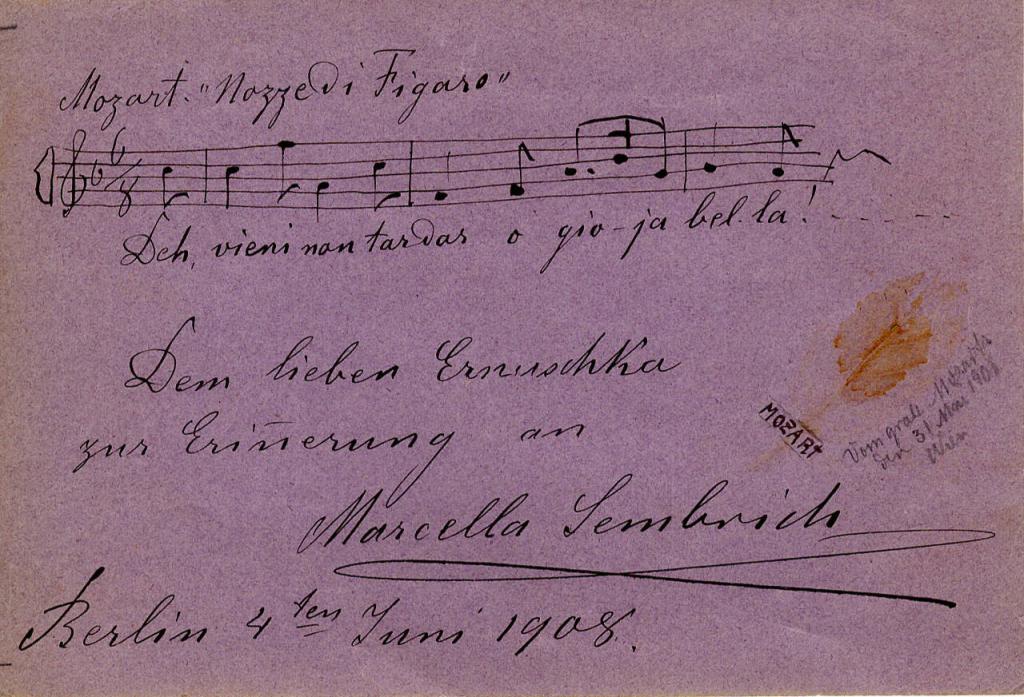 Mozart. "Nozze di Figaro"
6/8
Deh, vieni non tardar o gio-ja bel-la!
Dem lieben Ernuschka
zur Erin̄erung an
MOZART
Vom grabe Mozarts
den 31 Mai 1908
Wien
Marcella Sembrich
Berlin 4ten Juni 1908.